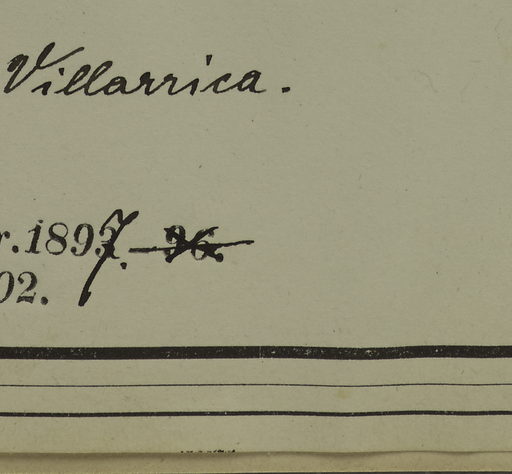 Villarrica.
r. 1897.
02.